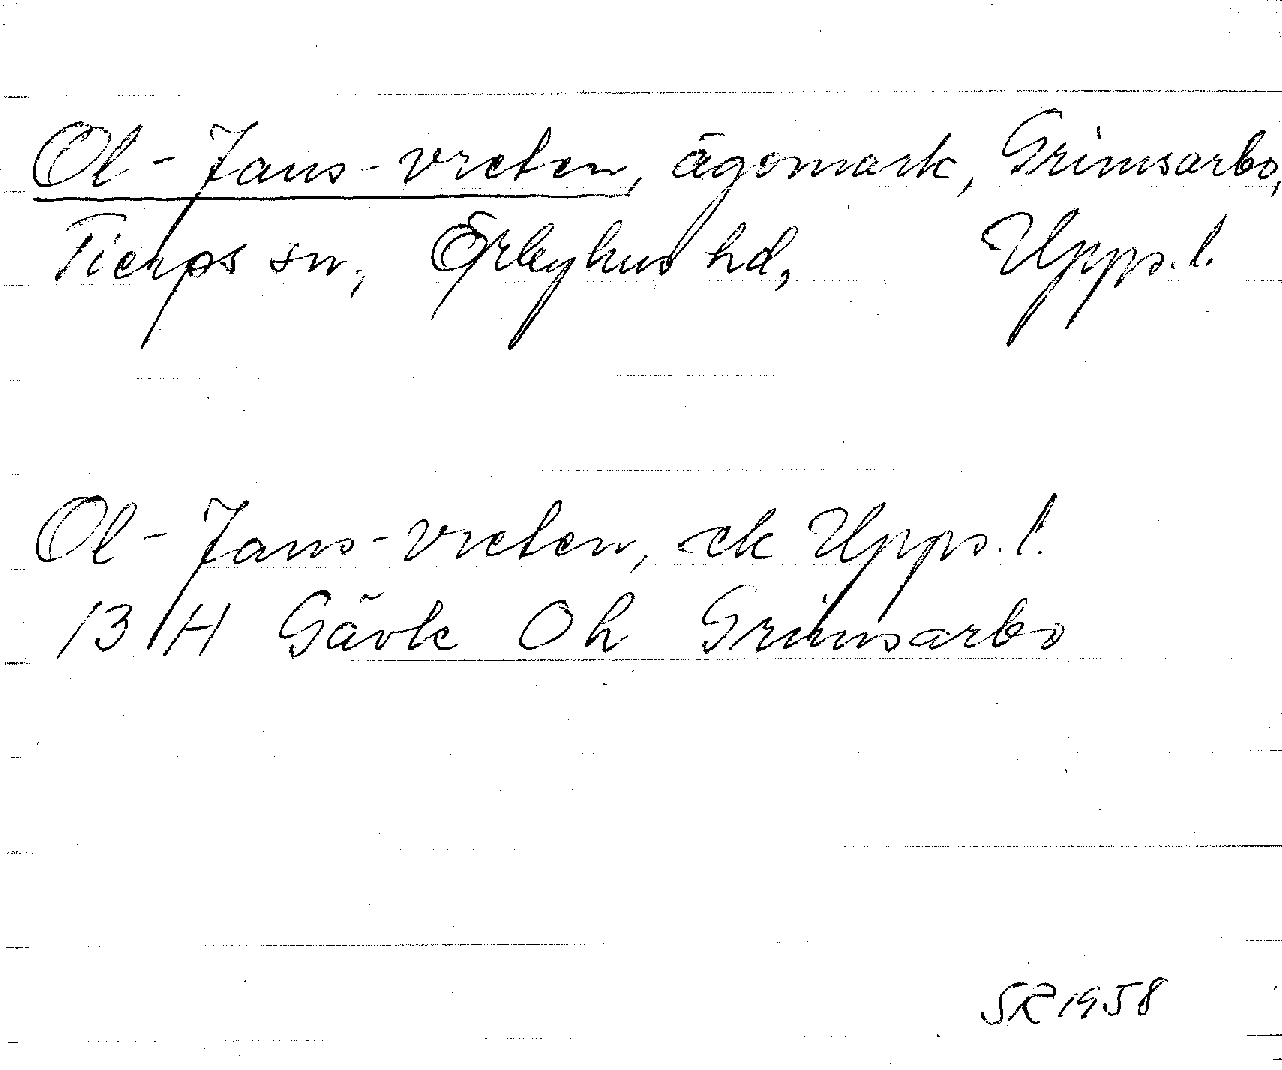 Ol-Jans-vreten, ägomark, Grimsarbo,
Tierps sn, Örbyhus hd, Upps.l.
Ol-Jans-vreten, ek Upps.l.
13 H Gävle Oh Grimsarbo
SR 1958